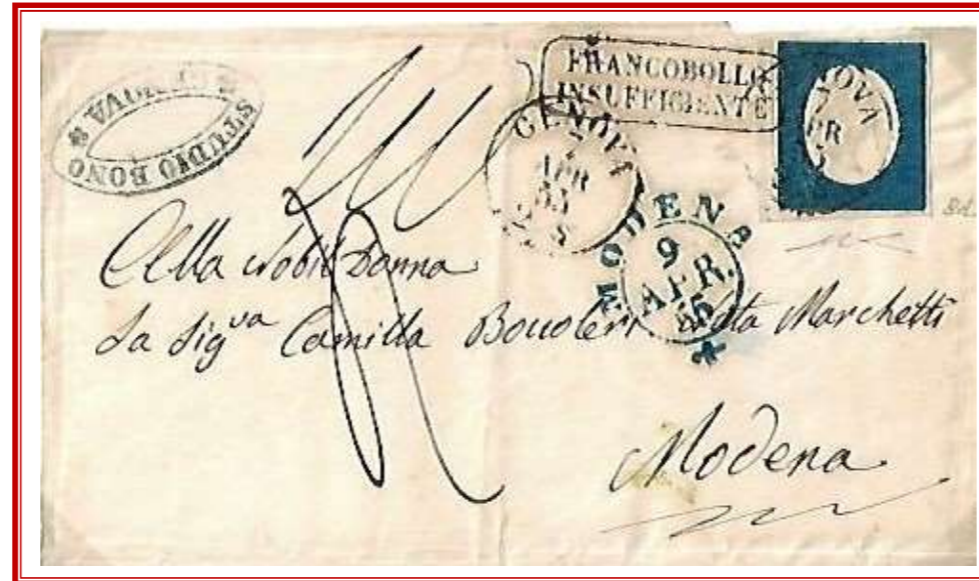 STUDIO BONO * GENOVA *
FRANCOBOLLO
INSUFFICIENTE
GENOVA
APR
55
NOVA
PR
MODENA
9
APR.
55
*
Alla Nobil Donna
La Sig.ra Camilla Nata Marchetti
Modena